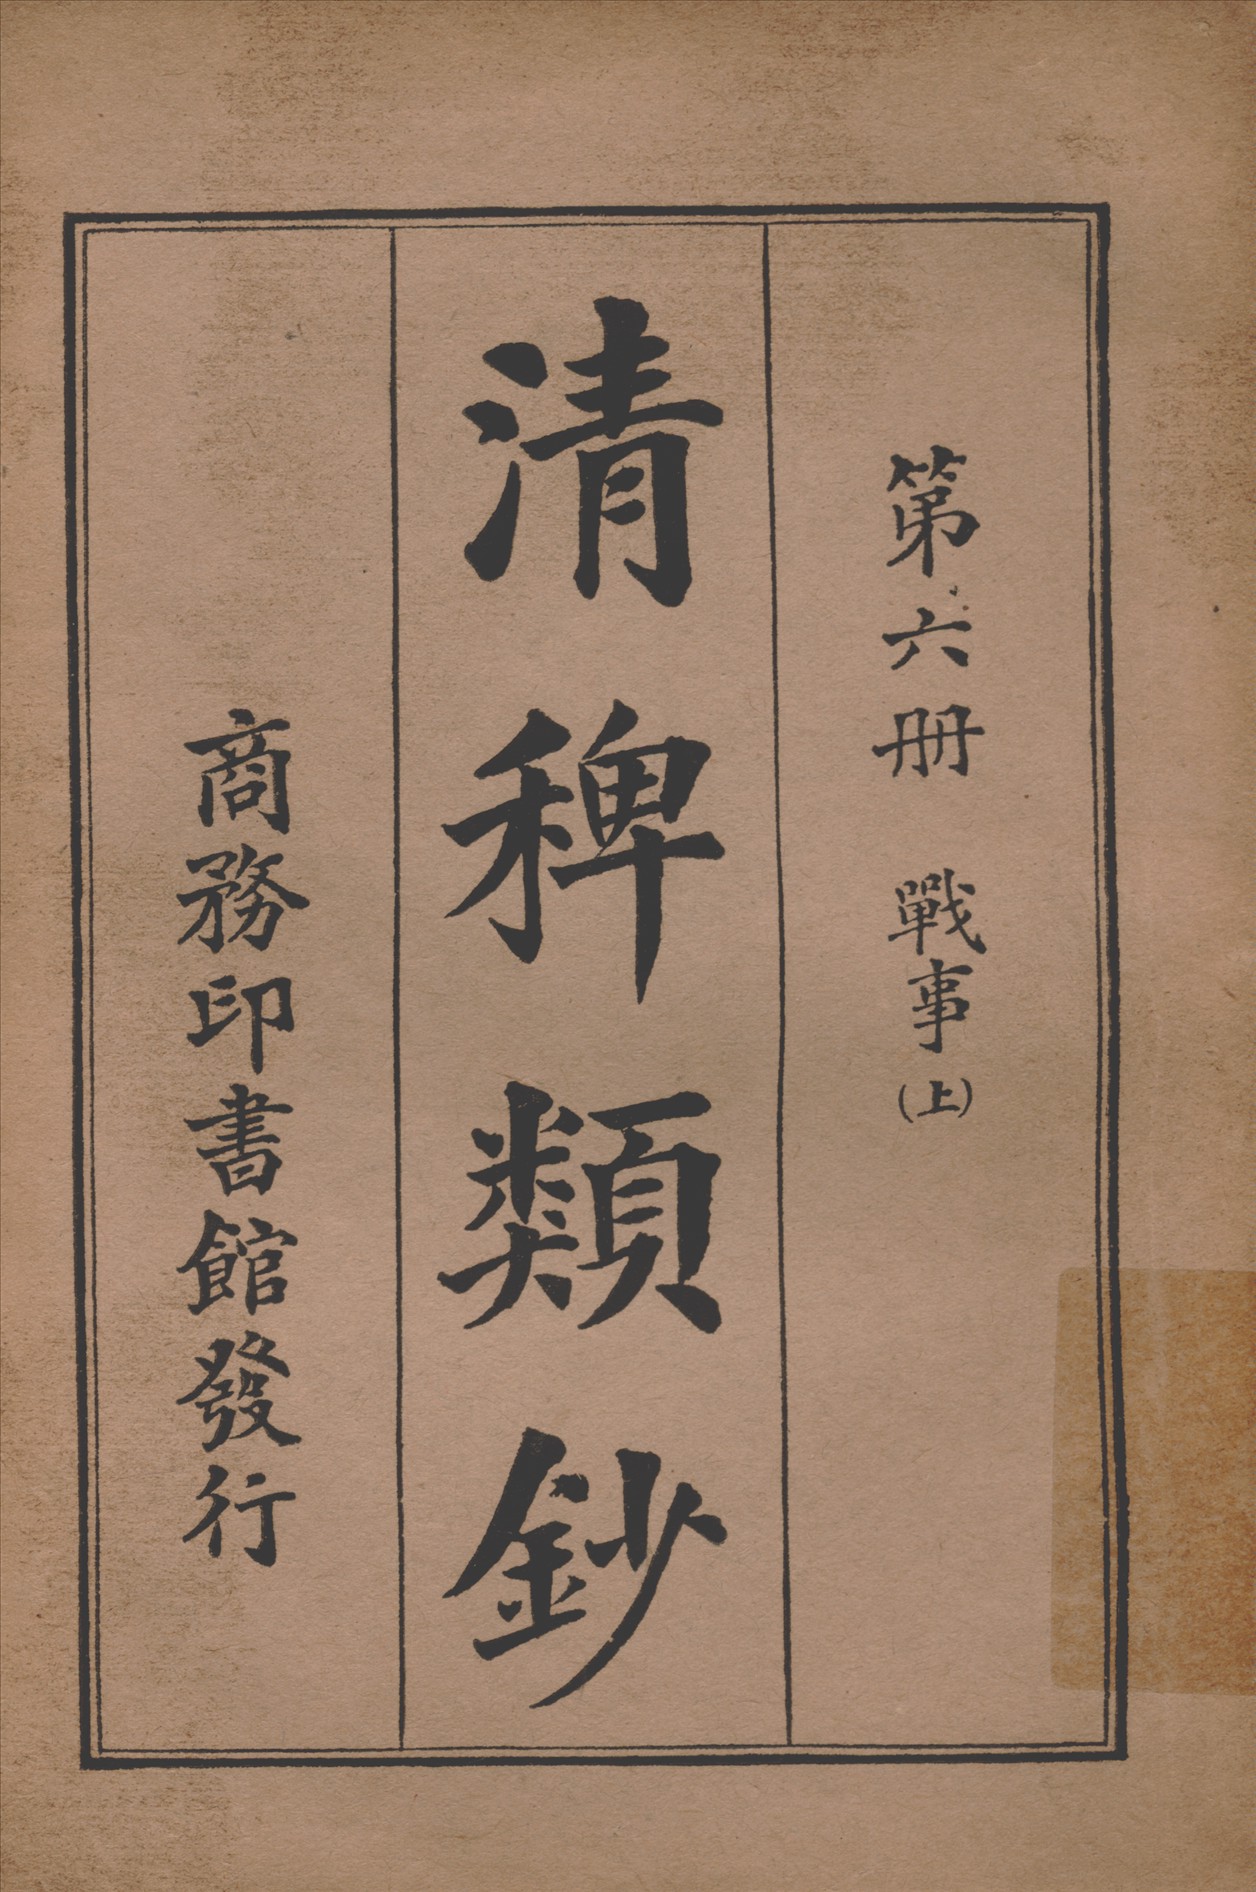 第六册 戰事(上)
清稗類鈔
商務印書館發行